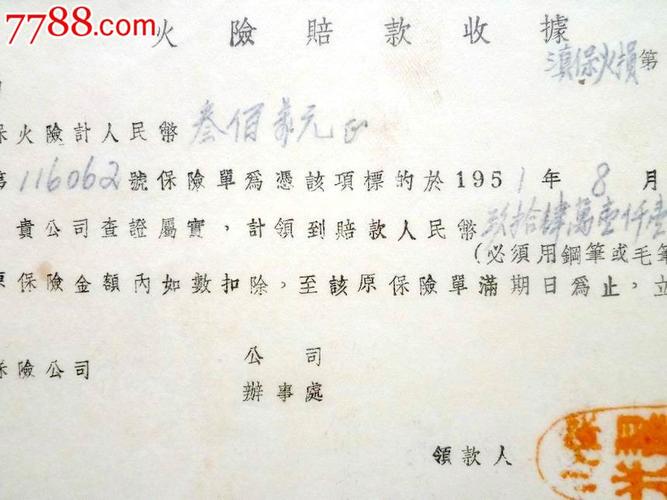 7788.com
火險賠款收據
滇保火損第
保火險計人民幣叁佰萬元正
第116062號保險單為憑該項標的於1951年8月
貴公司查證屬實，計領到賠款人民幣玖拾肆萬壹仟壹
(必須用鋼筆或毛筆
原保險金額內如數扣除，至該原保險單滿期日為止，立
保險公司 公司
辦事處
領款人